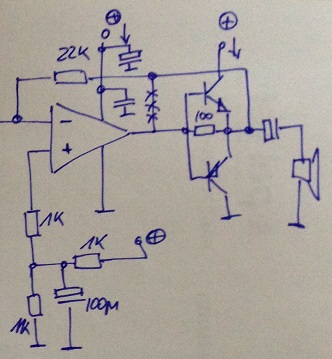 22K
100
1K
1K
1K
100µ